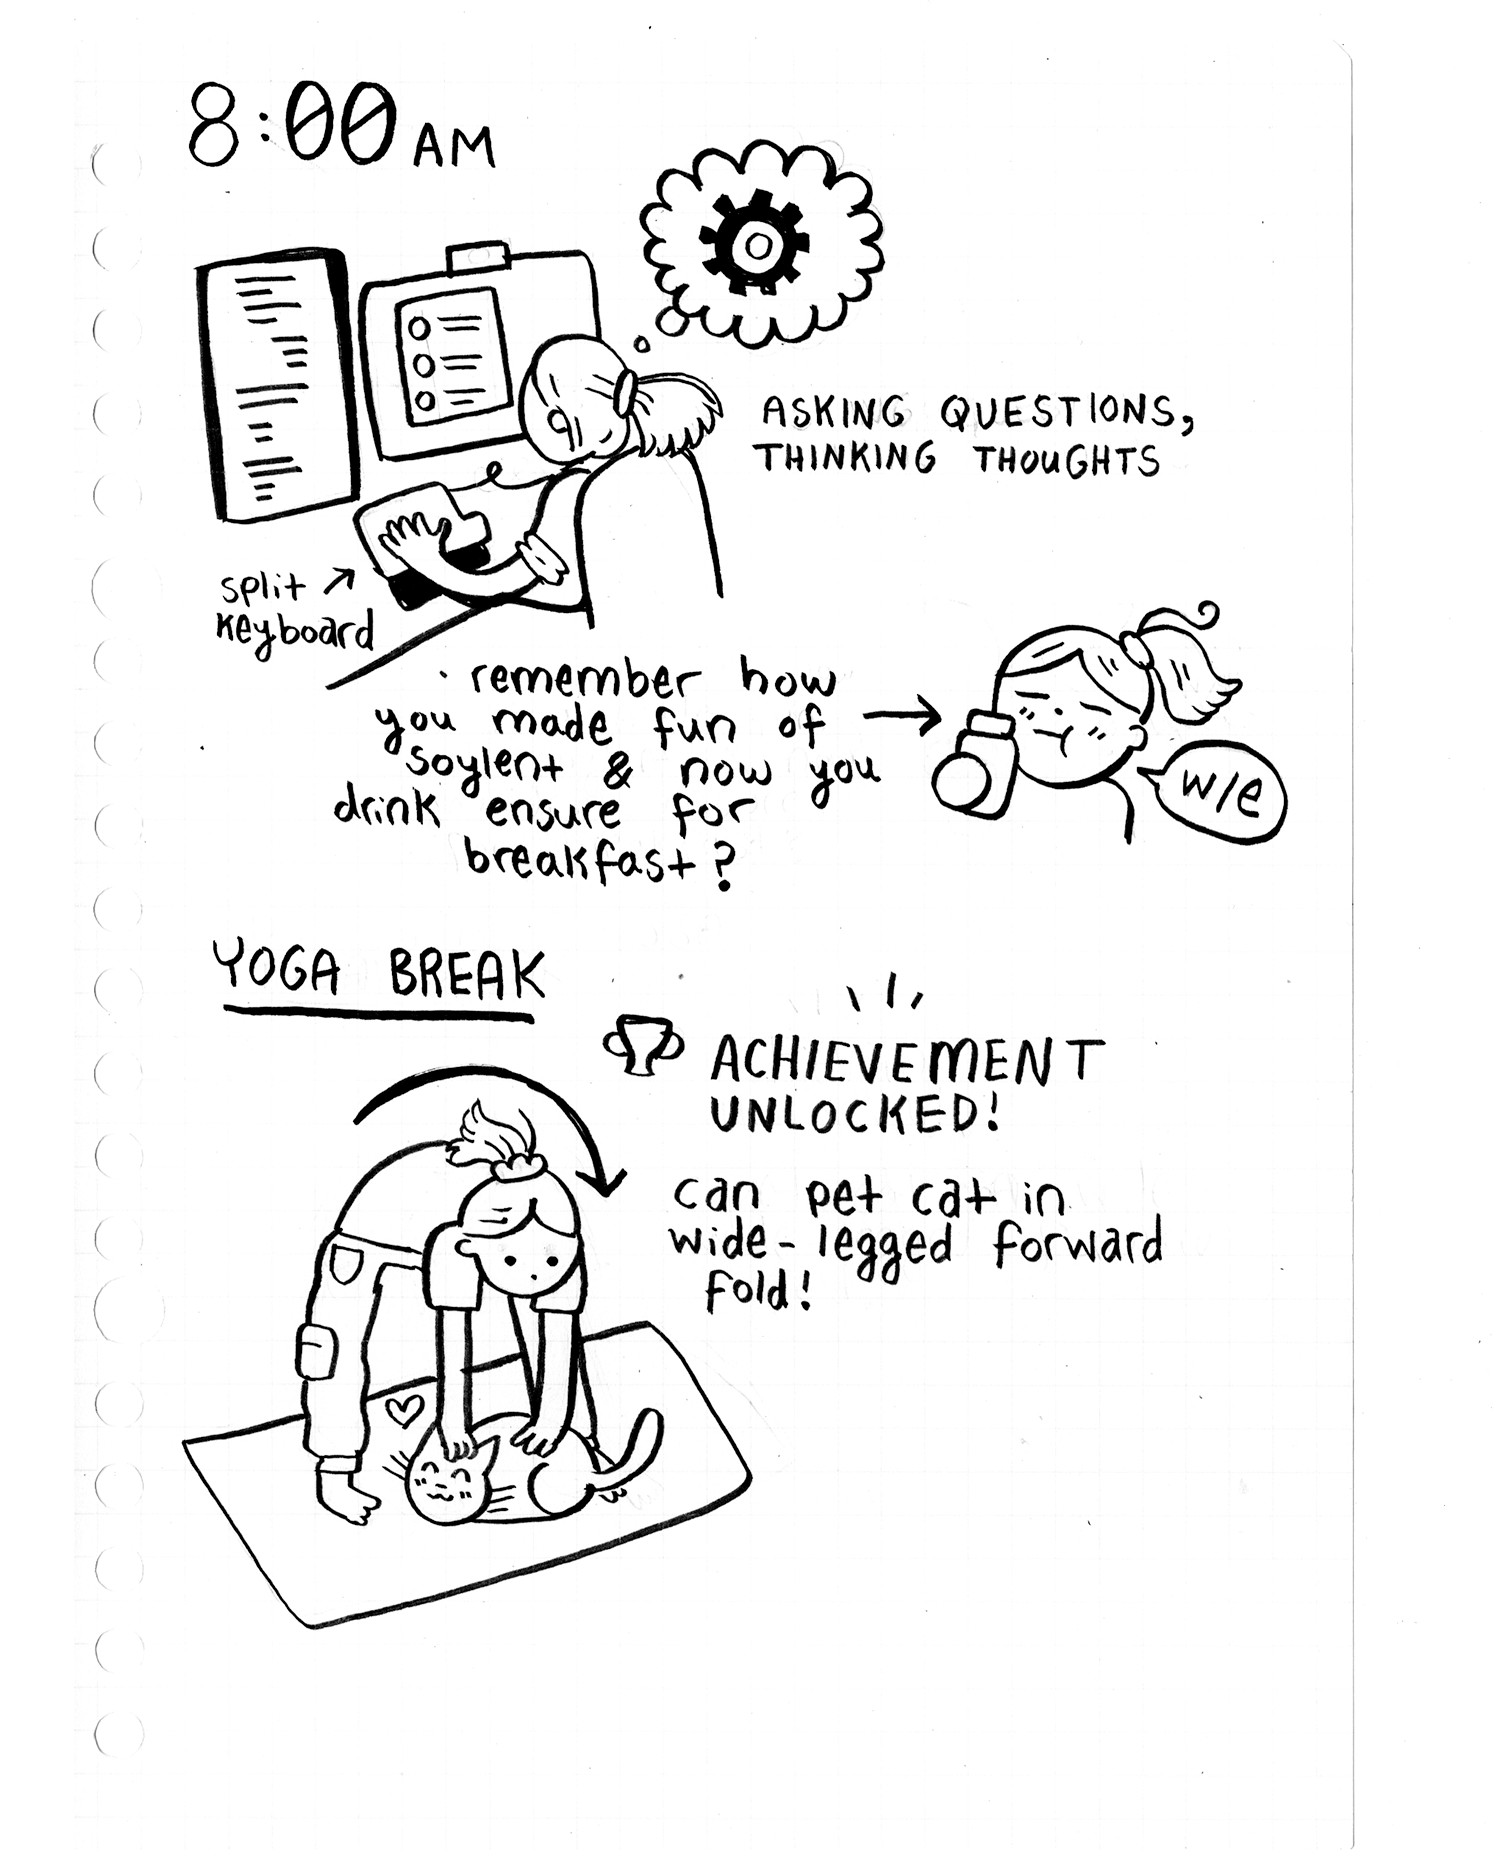 8:00 AM
ASKING QUESTIONS,
THINKING THOUGHTS
split
keyboard
remember how
you made fun of
soylent & now you
drink ensure for
breakfast?
w/e
YOGA BREAK
ACHIEVEMENT
UNLOCKED!
can pet cat in
wide-legged forward
fold!